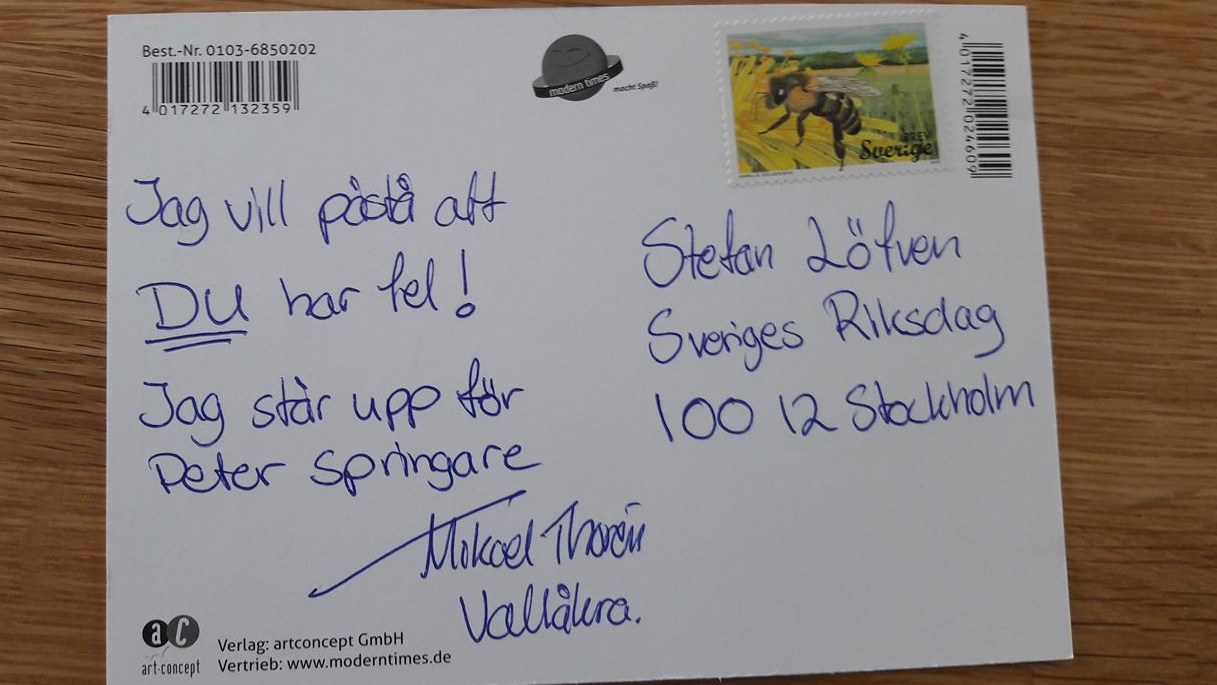 Best.-Nr. 0103-6850202
4 017272 132359
modern times
macht Spaß!
BREV
Sverige
4 017272 024609
Jag vill påstå att
DU har fel!
Jag står upp för
Peter Springare
Mikael Thorén
Vallåkra.
Stefan Löfven
Sveriges Riksdag
100 12 Stockholm
ac
art·concept
Verlag: artconcept GmbH
Vertrieb: www.moderntimes.de